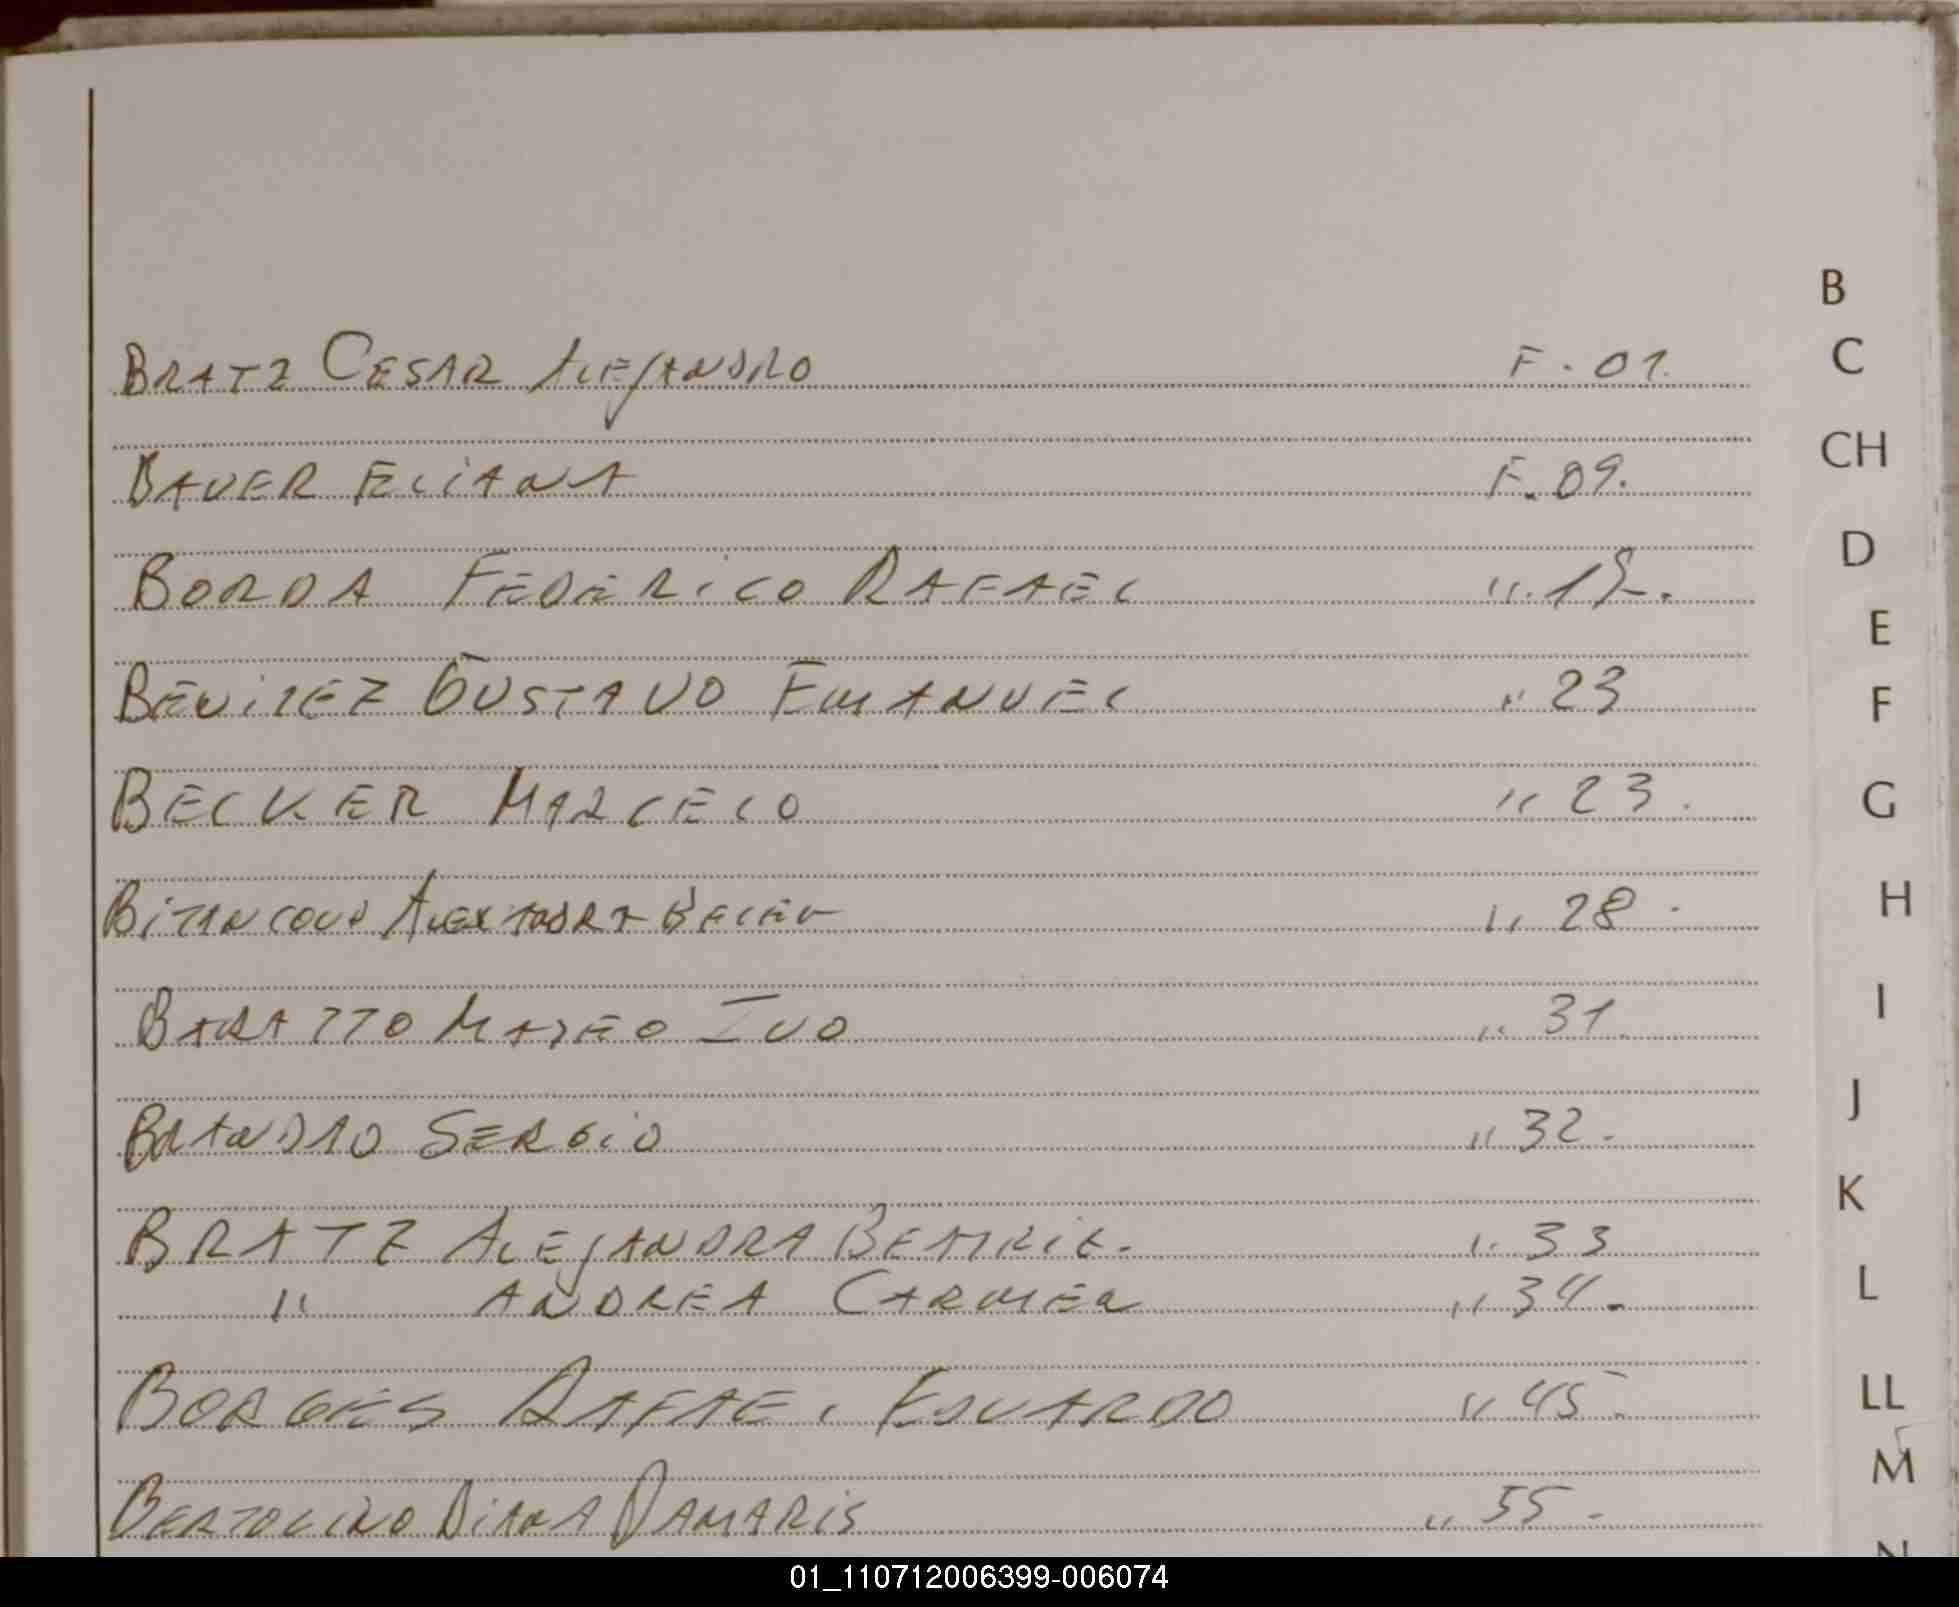 B
BRATZ CESAR ALEJANDRO F. 01.
C
CH
BAUER ELIANA F. 09.
D
BORDA FEDERICO RAFAEL
E
BENITEZ GUSTAVO EMANUEL " 23
F
BECKER MARCELO " 23.
G
BITANCOUR ALEXANDRA BELEN " 28.
H
BARATTO MATEO IVO " 31.
I
BRANDAO SERGIO " 32.
J
K
BRATZ ALEJANDRA BEATRIZ. " 33
L
" ANDREA CARMEN " 34.
LL
BORGES RAFAEL EDUARDO " 45.
M
BERTOLINO DIANA DAMARIS " 55.
N
01_110712006399-006074